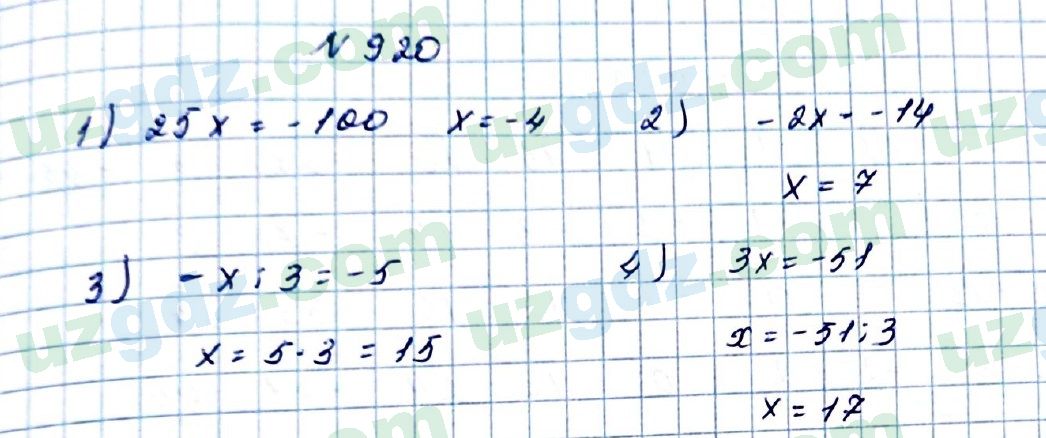 № 920
1) 25x = -100 x = -4 2) -2x - -14
x = 7
3) -x : 3 = -5 4) 3x = -51
x = 5 · 3 = 15 x = -51 : 3
x = 17
uzgdz.com
uzgdz.com
uzgdz.com
uzgdz.com